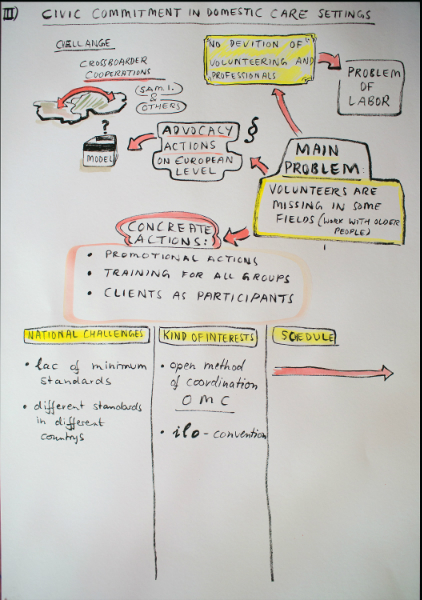 III) CIVIC COMMITMENT IN DOMESTIC CARE SETTINGS
CHELLANGE
CROSSBOARDER
COOPERATIONS
(SAM.I.
&
OTHERS)
NO DEVITION OF
VOLUNTEERING AND
PROFESSIONALS
PROBLEM
OF
LABOR
?
MODEL
ADVOCACY §
ACTIONS
ON EUROPEAN
LEVEL
MAIN
PROBLEM:
VOLUNTEERS ARE
MISSING IN SOME
FIELDS (WORK WITH OLDER
PEOPLE)
CONCREATE
ACTIONS:
• PROMOTIONAL ACTIONS
• TRAINING FOR ALL GROUPS
• CLIENTS AS PARTICIPANTS
NATIONAL CHALLENGES
• lac of minimum
standards
• different standards
in different
countrys
KIND OF INTERESTS
• open method
of coordination
OMC
• ilo-convention
SCHEDULE